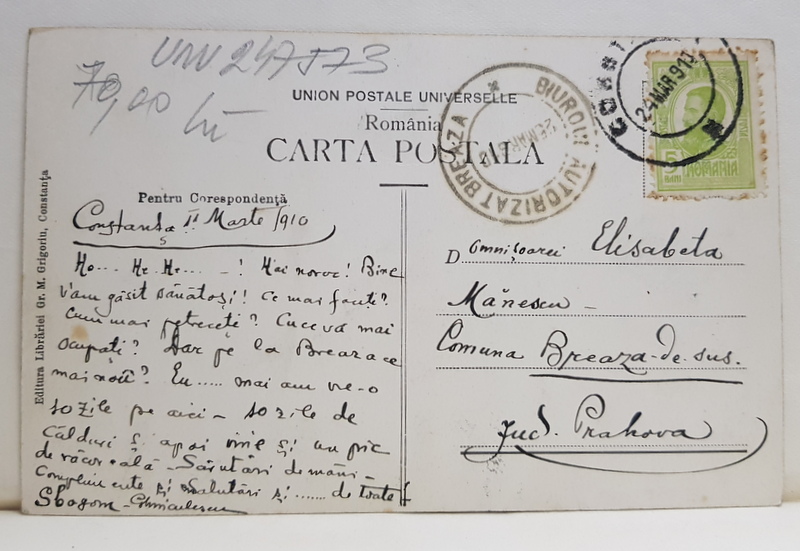 UNIV 247573
70,00 lei
UNION POSTALE UNIVERSELLE
România
CARTA POSTALA
BIUROUL AUTORIZAT BREAZA
CONST
24 MAR 910
5
BANI
ROMANIA
Editura Librăriei Gr. M. Grigoriu, Constanța
Pentru Corespondență
Constanța Marte 1910
Ho... Hr. Hr... –! Hai noroc! Bine
v'am găsit sănătoși! Ce mai faceți?
Cum mai petreceți? Cu ce vă mai
ocupați? Dar pe la Breaza ce
mai nou? Eu ..... mai am vre-o
10 zile pe aici – 10 zile de
călduri și apoi vine și un pic
de răcoreală – Sărutări de mâni –
Complimente și salutări și ....... de toate
Sbogom –
Domnișoarei Elisabeta
Mănescu –
Comuna Breaza-de-sus.
Jud. Prahova